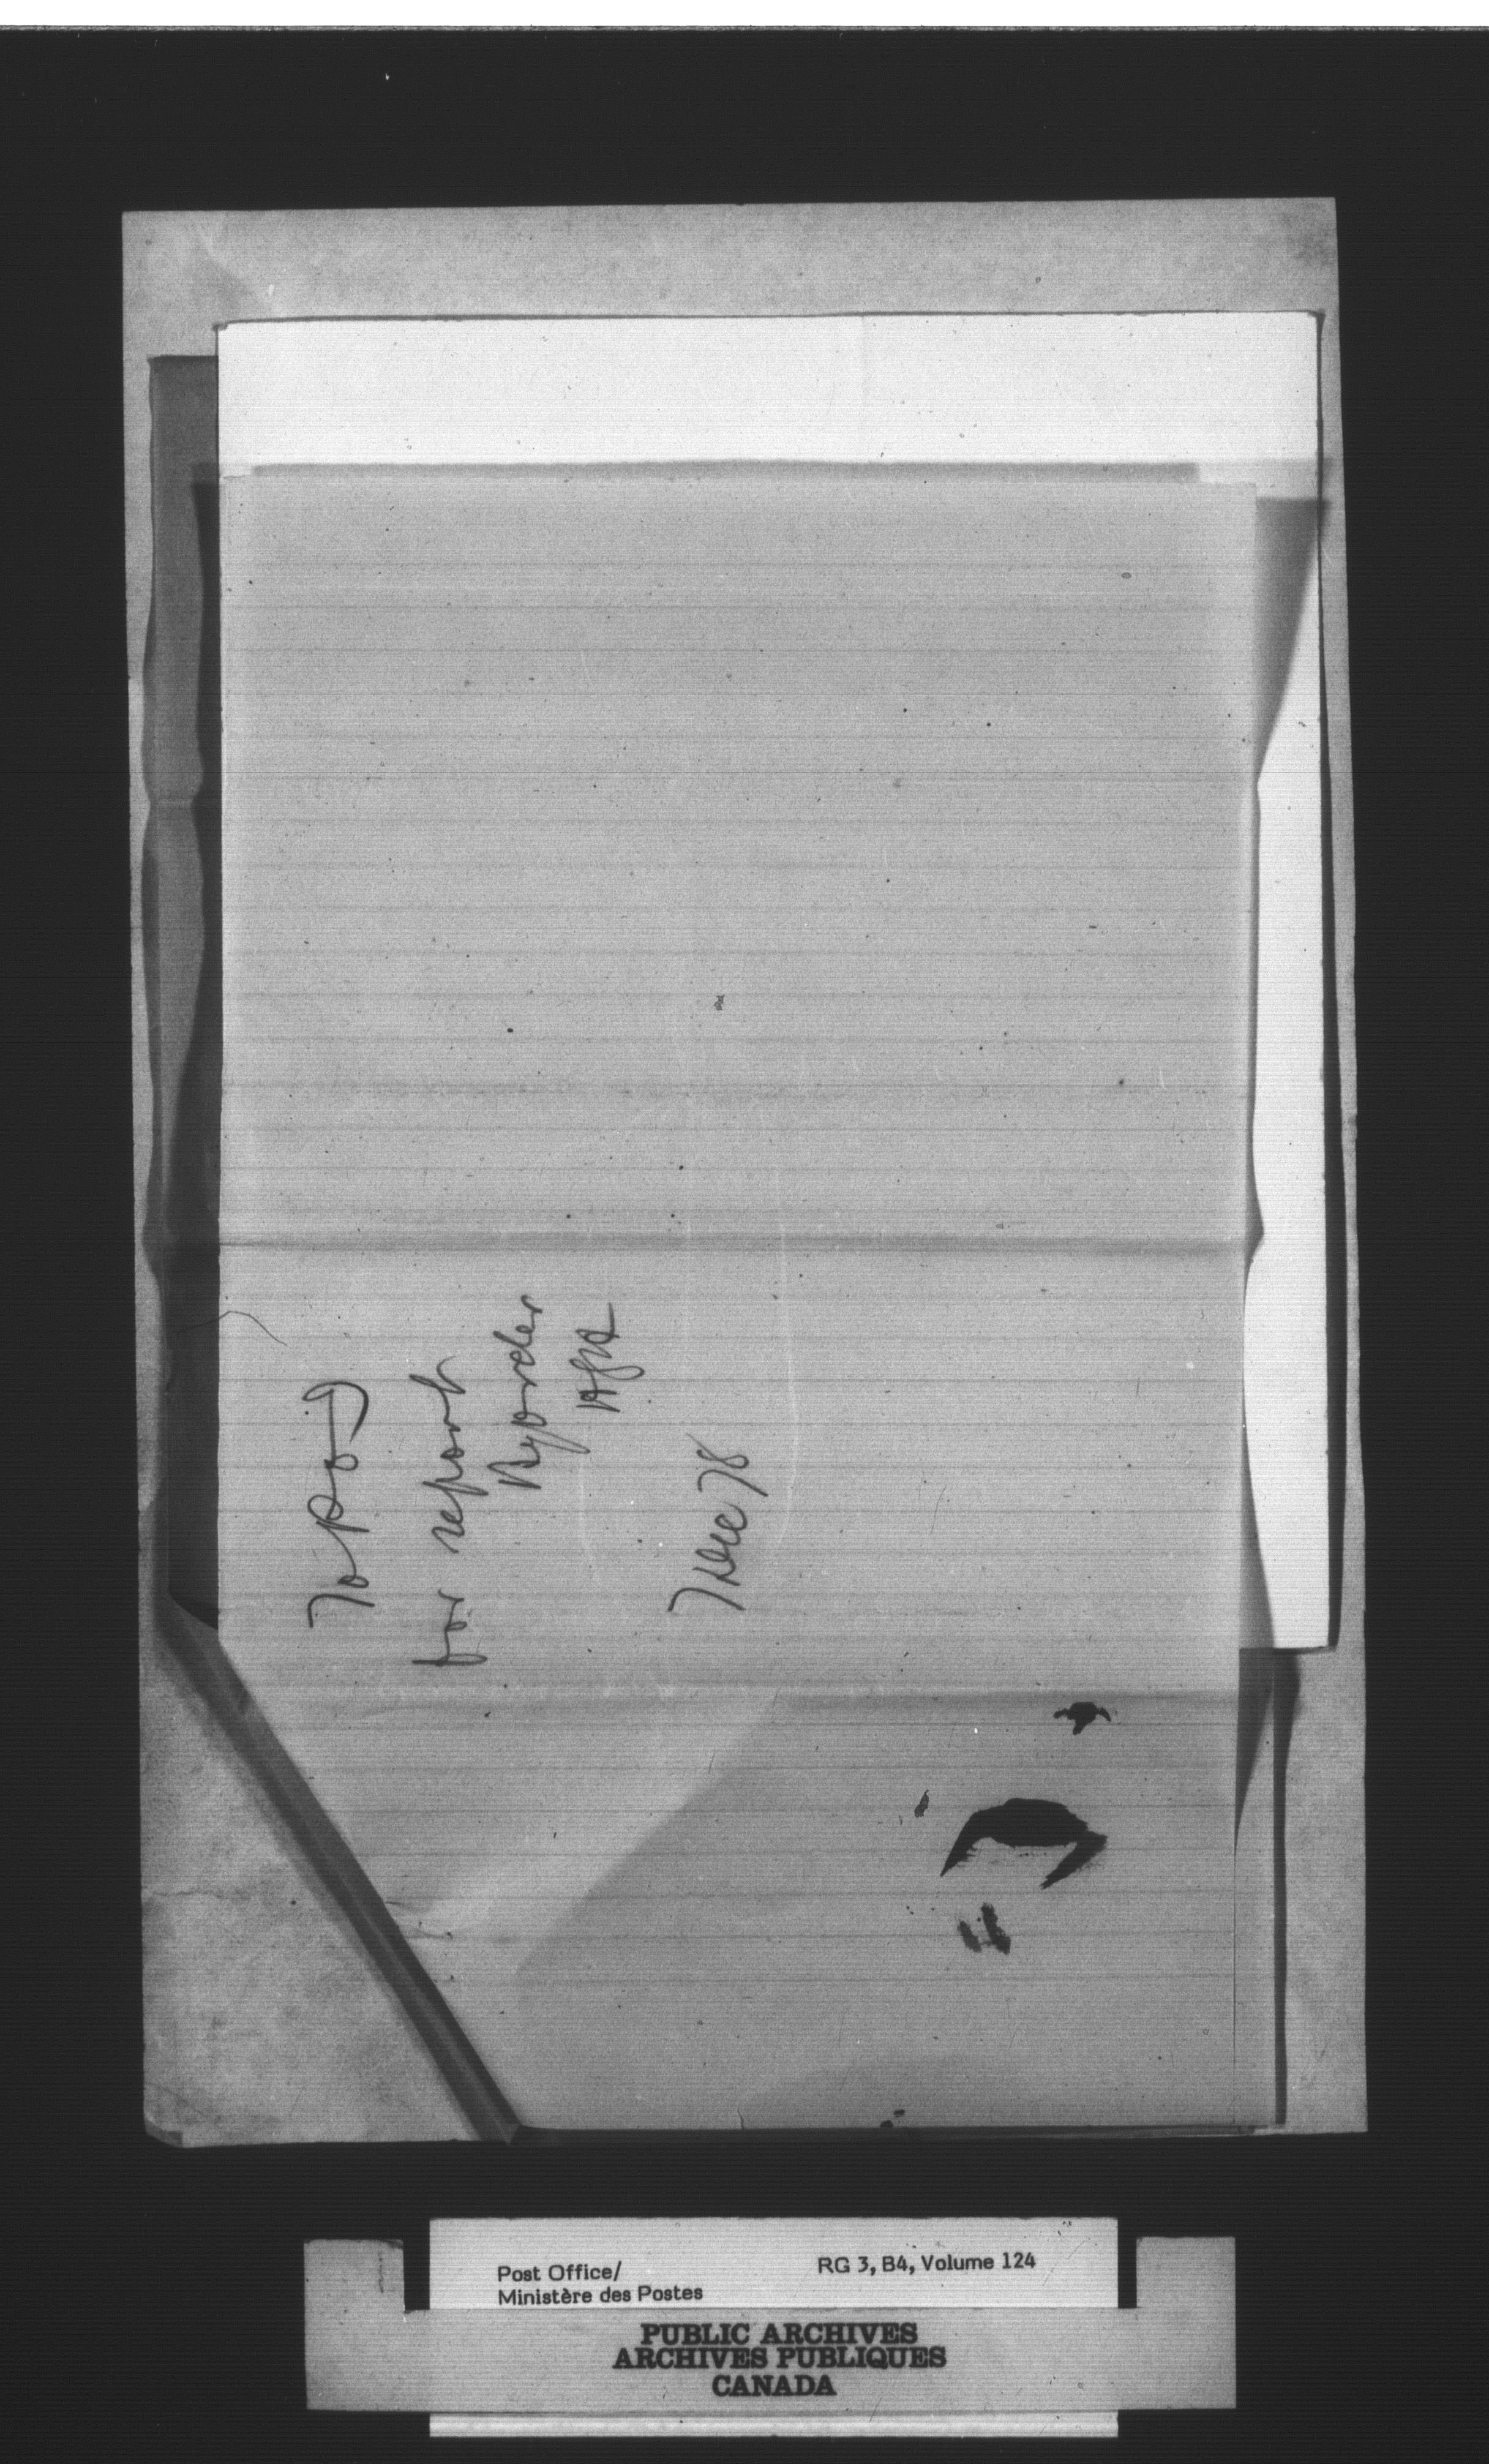 To P O I
for report
By order
7 Dec 78
Post Office/
Ministère des Postes
RG 3, B4, Volume 124
PUBLIC ARCHIVES
ARCHIVES PUBLIQUES
CANADA